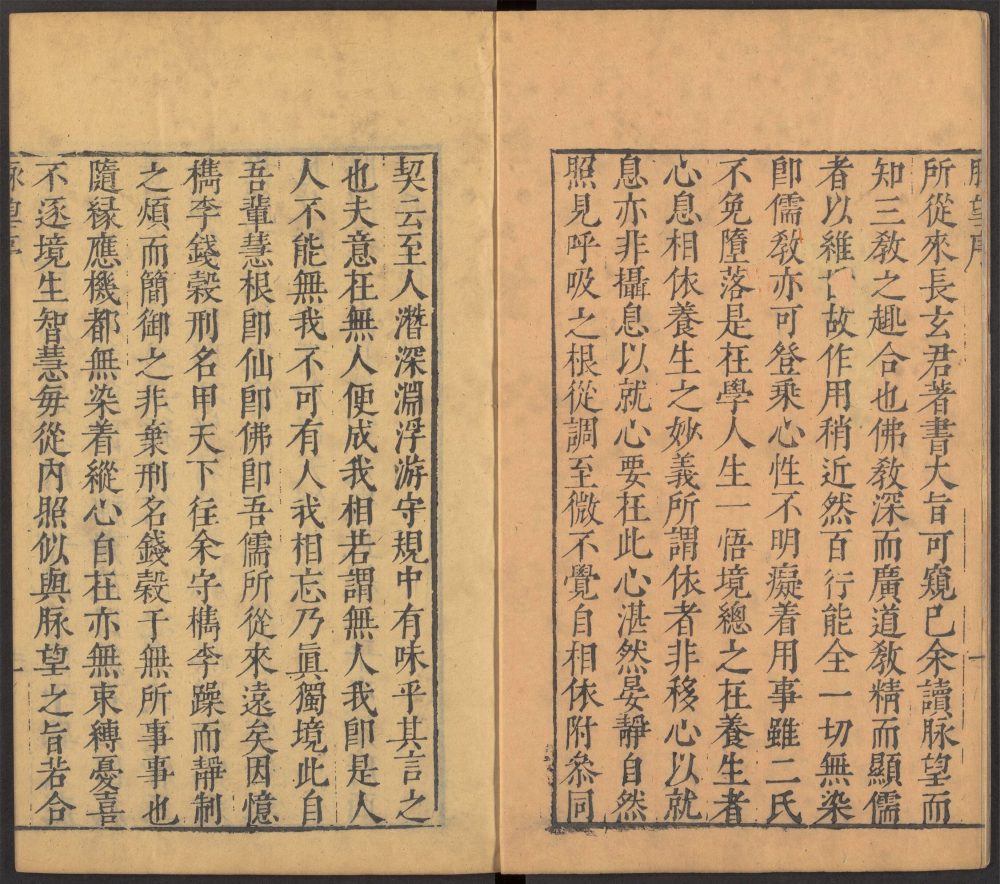 脉望序
所從來長玄君著書大旨可窺已余讀脉望而
知三教之趣合也佛教深而廣道教精而顯儒
者以維故作用稍近然百行能全一切無染
卽儒教亦可登乘心性不明癡着用事雖二氏
不免墮落是在學人生一悟境總之在養生者
心息相依養生之妙義所謂依者非移心以就
息亦非攝息以就心要在此心湛然晏靜自然
照見呼吸之根從調至微不覺自相依附叅同
契云至人潛深淵浮游守規中有味乎其言之
也夫意在無人便成我相若謂無人我卽是人
人不能無我不可有人我相忘乃眞獨境此自
吾輩慧根卽仙卽佛卽吾儒所從來遠矣因憶
檇李錢穀刑名甲天下往余守檇李躁而靜制
之煩而簡御之非棄刑名錢穀于無所事事也
隨緣應機都無染着縱心自在亦無束縛憂喜
不逐境生智慧每從內照似與脉望之旨若合
脉望序
一